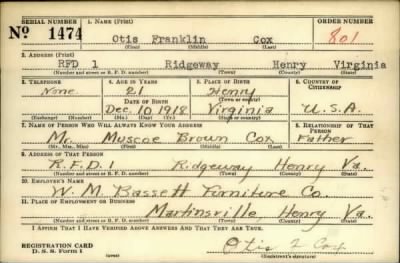 SERIAL NUMBER 1. NAME (Print) ORDER NUMBER
No 1474 Otis Franklin Cox 801
(First) (Middle) (Last)
2. ADDRESS (Print)
RFD 1 Ridgeway Henry Virginia
(Number and street or R. F. D. number) (Town) (County) (State)
3. TELEPHONE 4. AGE IN YEARS 5. PLACE OF BIRTH 6. COUNTRY OF CITIZENSHIP
None 21 Henry
DATE OF BIRTH (Town or county)
Dec. 10 1918 Virginia U.S.A.
(Exchange) (Number) (Mo.) (Day) (Yr.) (State or country)
7. NAME OF PERSON WHO WILL ALWAYS KNOW YOUR ADDRESS 8. RELATIONSHIP OF THAT PERSON
Mr. Muscoe Brown Cox Father
(Mr., Mrs., Miss) (First) (Middle) (Last)
9. ADDRESS OF THAT PERSON
R.F.D. 1 Ridgeway Henry Va.
(Number and street or R. F. D. number) (Town) (County) (State)
10. EMPLOYER'S NAME
W. M. Bassett Furniture Co.
11. PLACE OF EMPLOYMENT OR BUSINESS
Martinsville Henry Va.
(Number and street or R. F. D. number) (Town) (County) (State)
I AFFIRM THAT I HAVE VERIFIED ABOVE ANSWERS AND THAT THEY ARE TRUE.
REGISTRATION CARD
D. S. S. Form 1 Otis F Cox
(Registrant's signature)